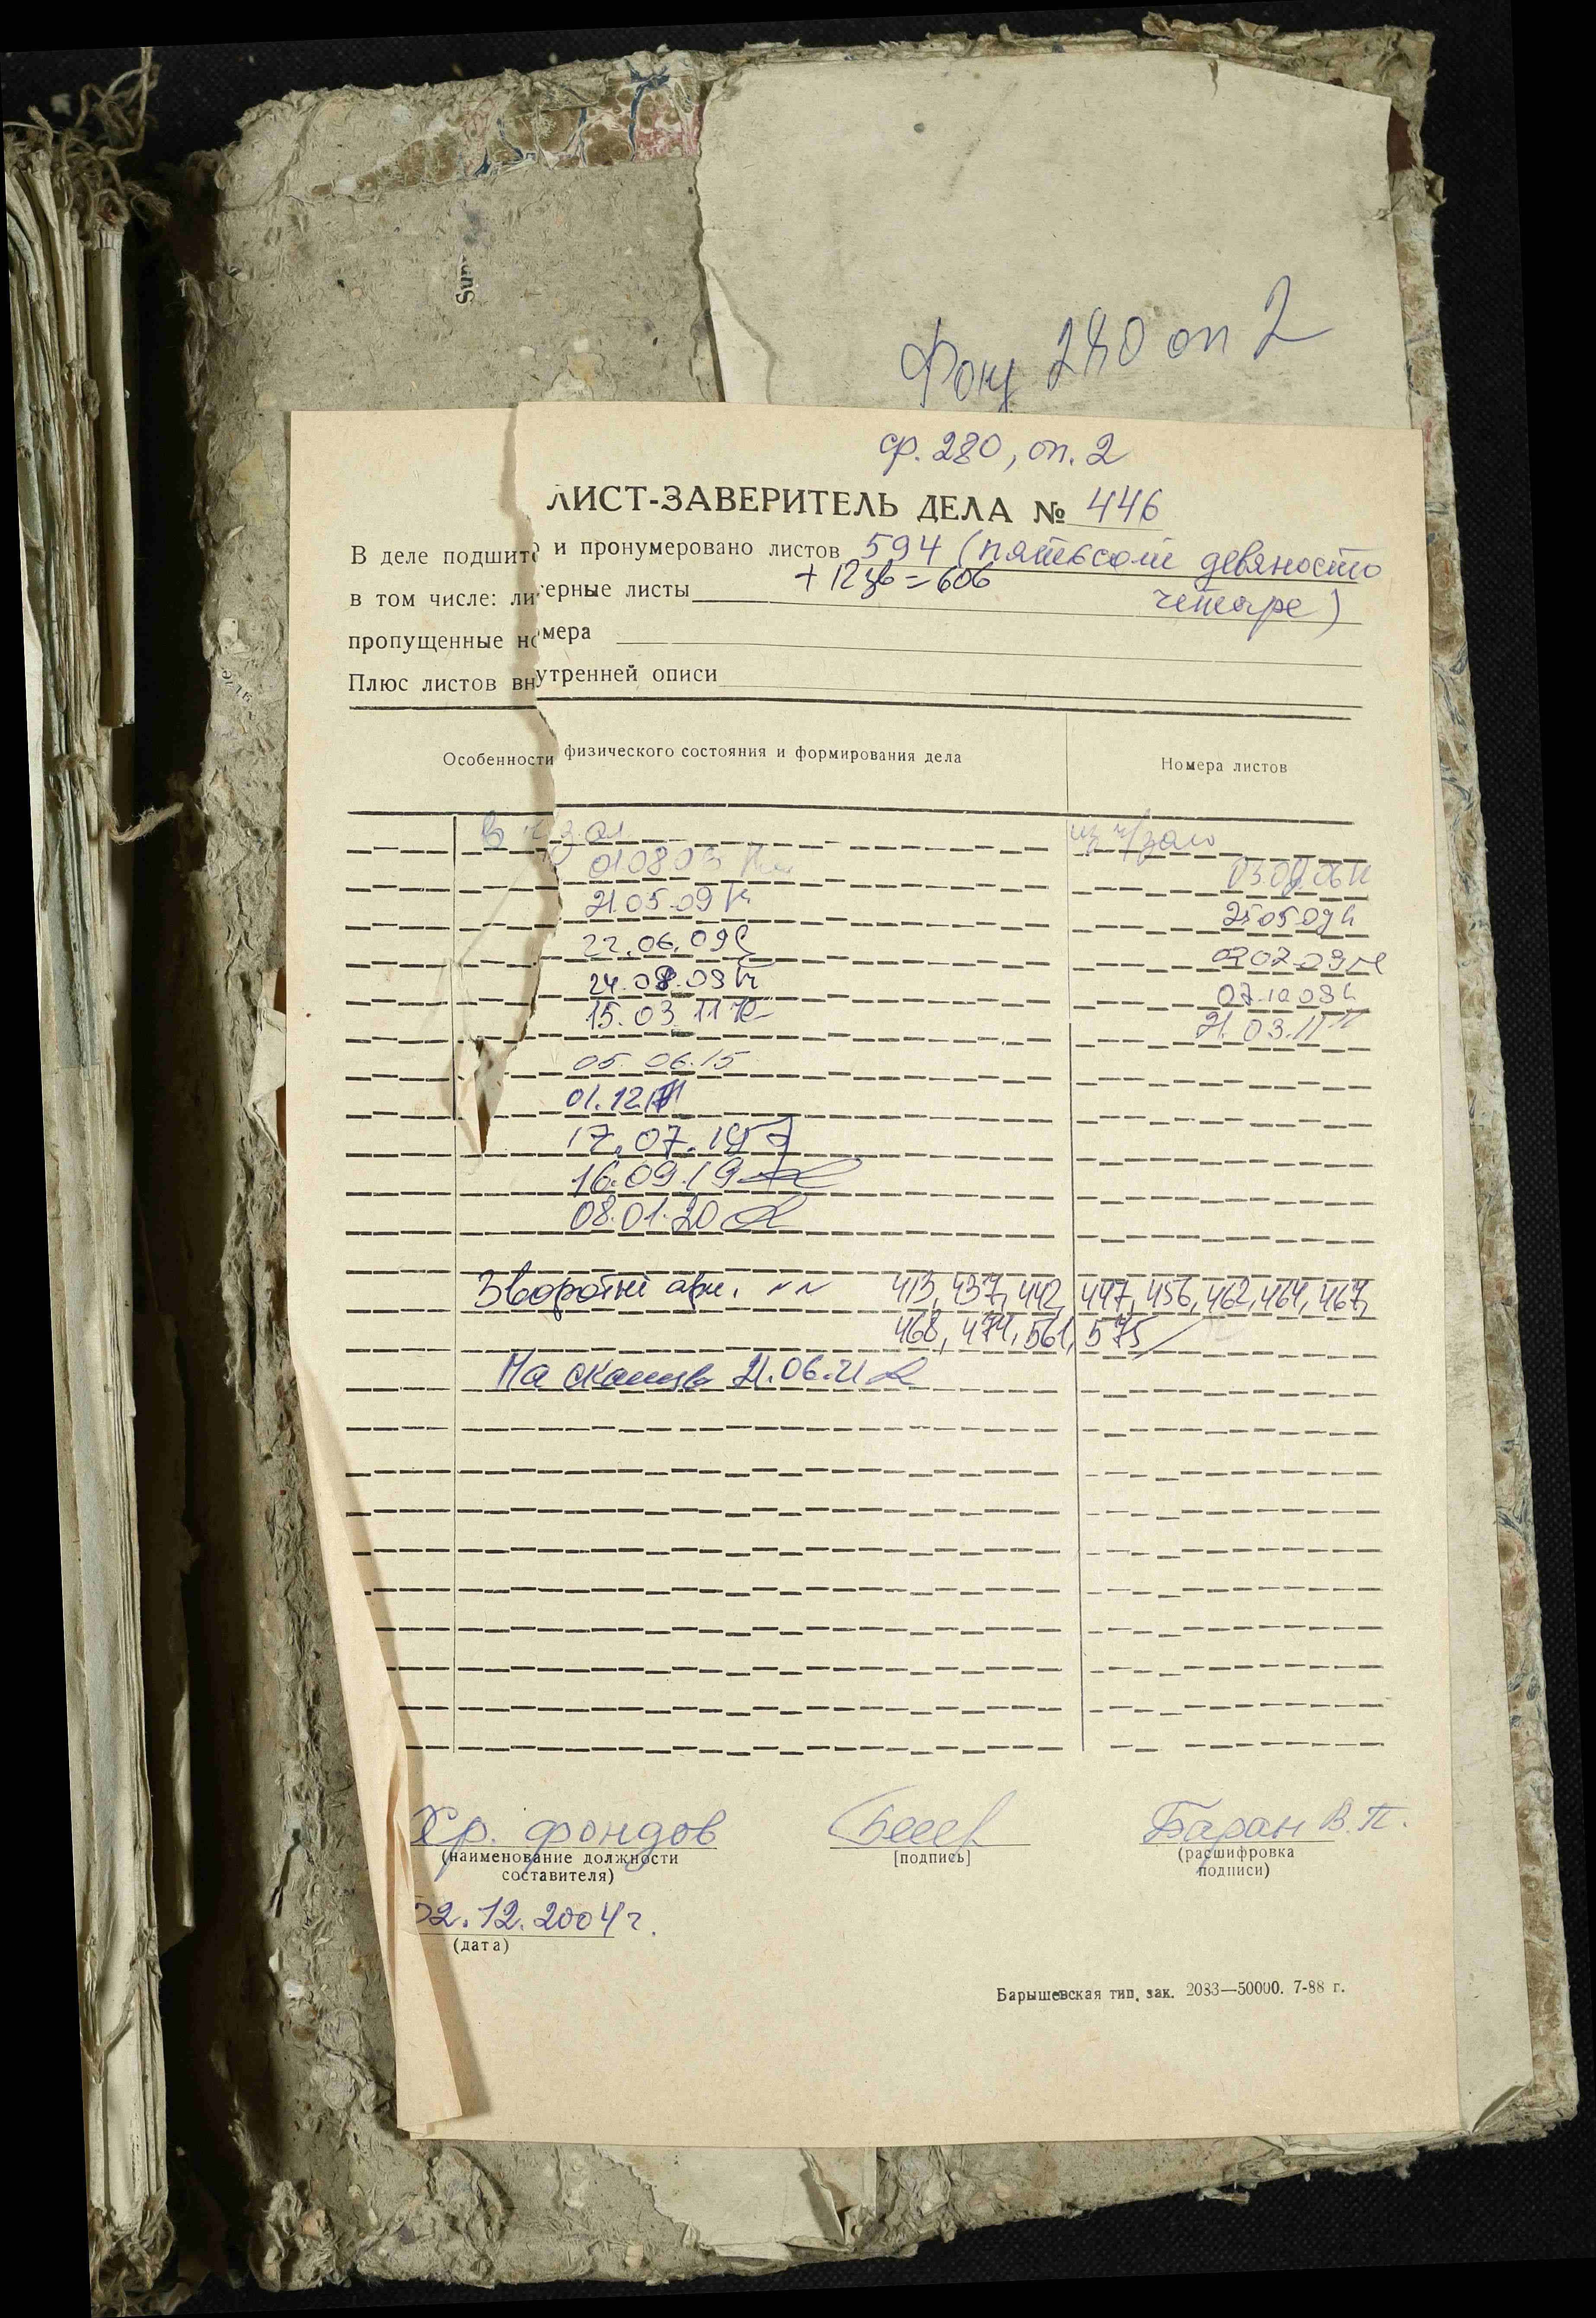 Фонд 280 оп 2
ф. 280, оп. 2
ЛИСТ-ЗАВЕРИТЕЛЬ ДЕЛА № 446
В деле подшито и пронумеровано листов 594 (пятьсот девяносто
+ 12 зв = 606
в том числе: литерные листы четыре)
пропущенные номера
Плюс листов внутренней описи
Особенности физического состояния и формирования дела
Номера листов
в ч/зал из ч/зала
01 08 03.07.06
21.05.09 25 05 09
22.06.09 02 07 09
24.08.09 07.10 09
15.03.11 21.03.11
05.06.15
01.12.17
17.07.19
16.09.19
08.01.20
Зворотні арк. 413, 437, 442, 447, 456, 462, 464, 467,
468, 474, 561, 575
На сканув 21.06.21
Хр. фондов
(наименование должности
составителя)
[подпись]
Баран В.П.
(расшифровка
подписи)
02.12.2004 г.
(дата)
Барышевская тип. зак. 2083—50000. 7-88 г.